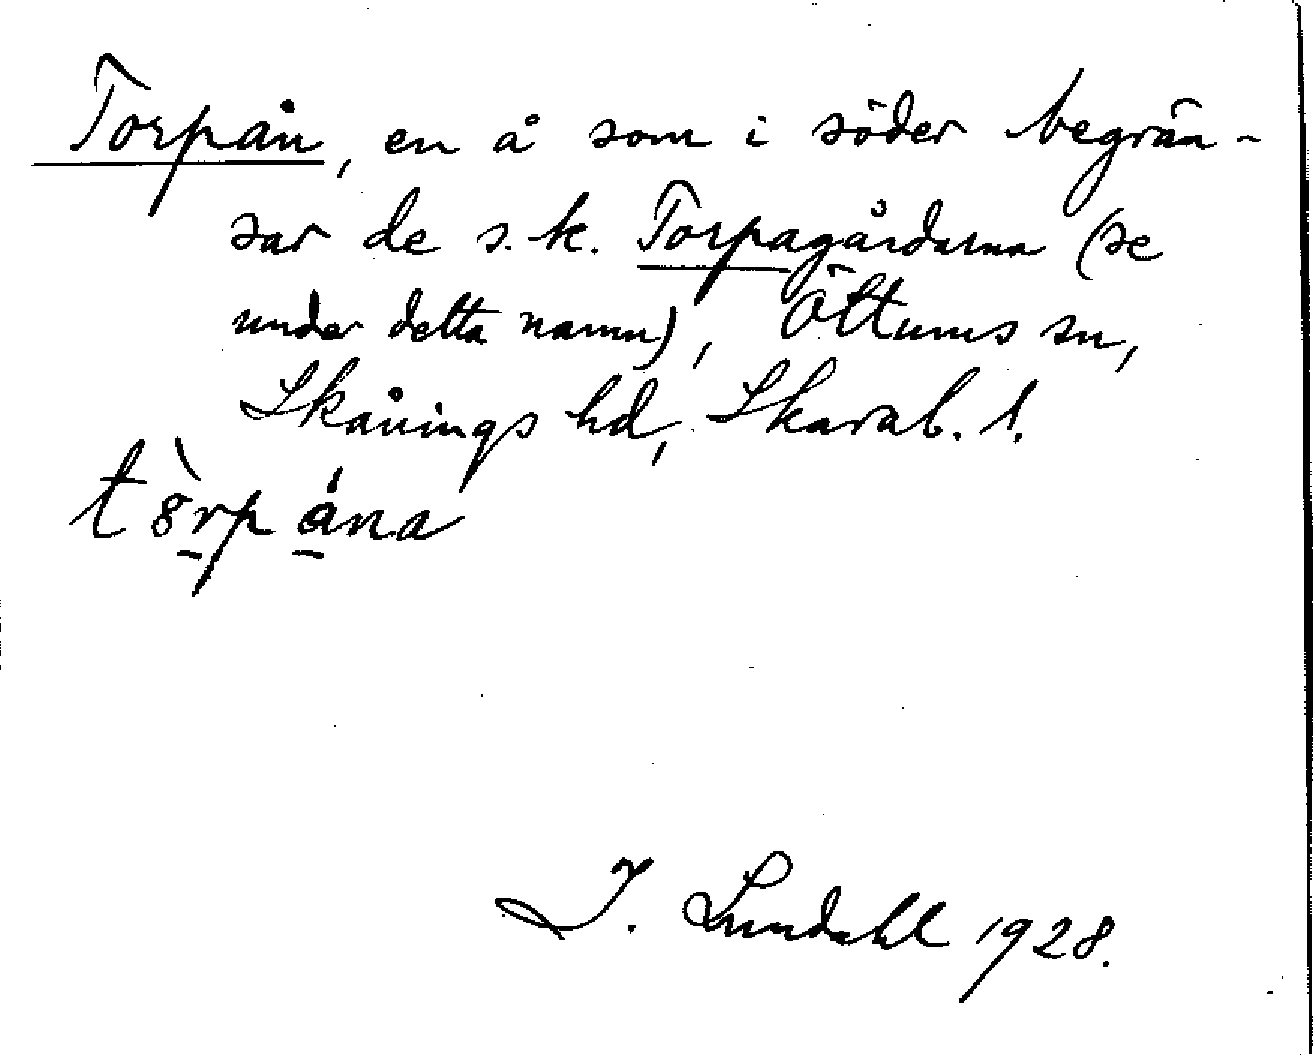 Torpån, en å som i söder begrän-
sar de s.k. Torpagårdarna (se
under detta namn), Öttums sn,
Skånings hd, Skarab. l.
tò̱rpåna
I. Lundahl 1928.